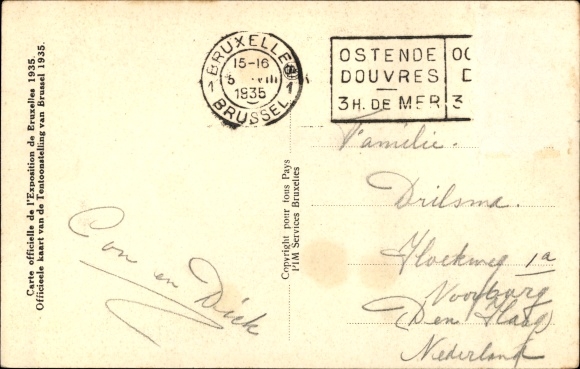 Carte officielle de l'Exposition de Bruxelles 1935.
Officieele kaart van de Tentoonstelling van Brussel 1935.
Copyright pour tous Pays
PIM Services Bruxelles
BRUXELLES
15-16
5 VIII
1935
1 1
BRUSSEL
OSTENDE
DOUVRES
3 H. DE MER
OC
D
3
Familie.
Drilsma.
1a
Voorburg
(Den Haag)
Nederland
Con en Dick